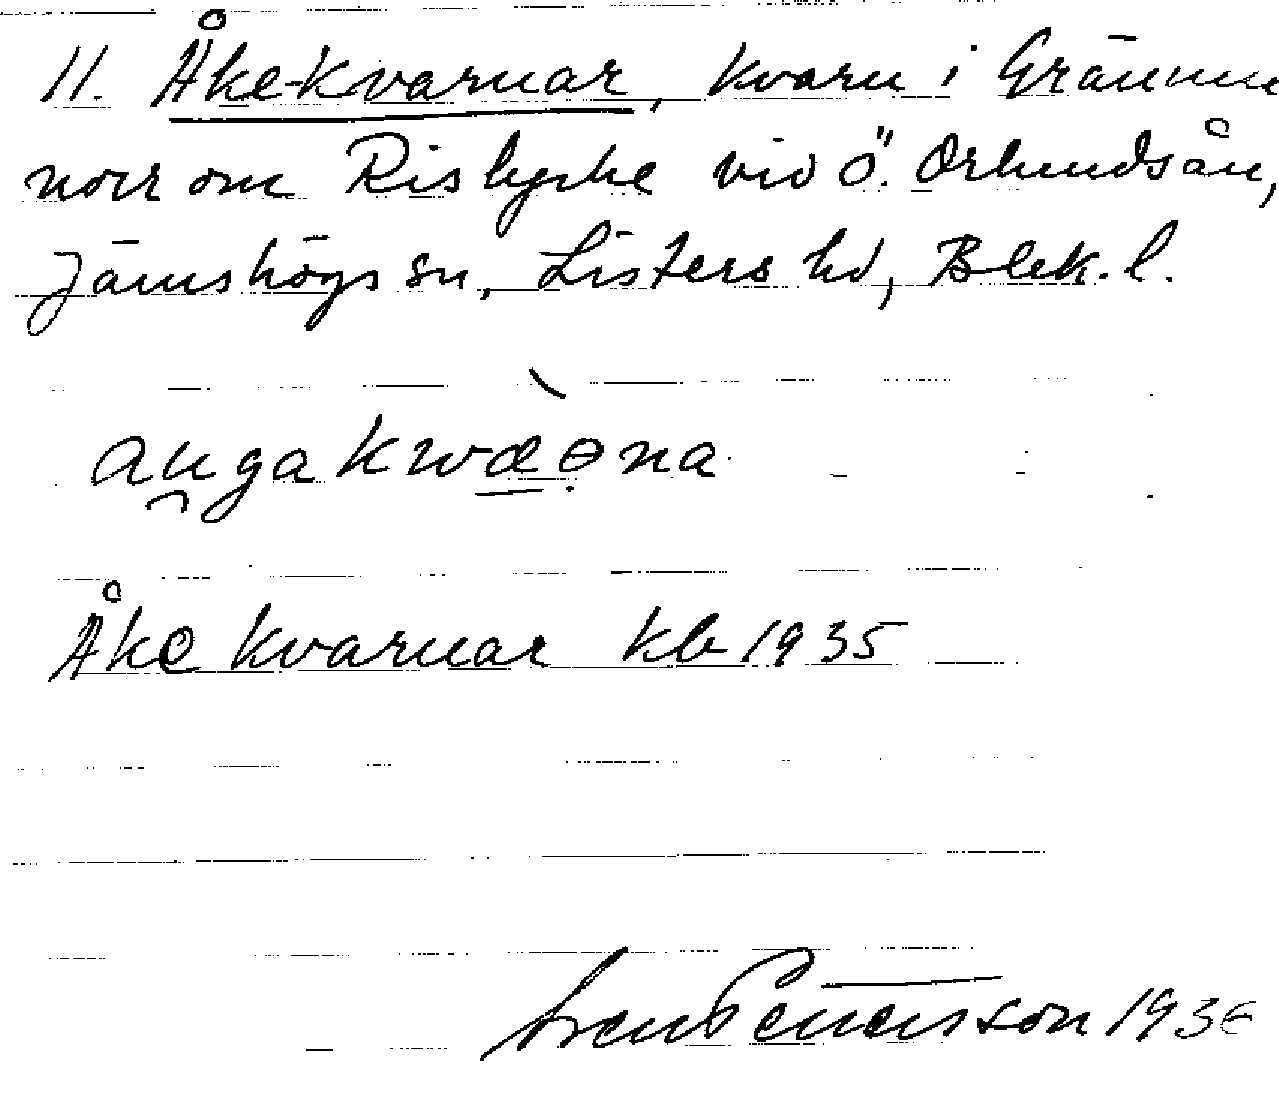 11. Åke-kvarnar, kvarn i Grännum
norr om Rislycke vid Ö. Orlundsån,
Jämshögs sn, Listers hd, Blek. l.
au̯gakwæə̣na
Åke kvarnar kb 1935
Sven Pettersson 1936